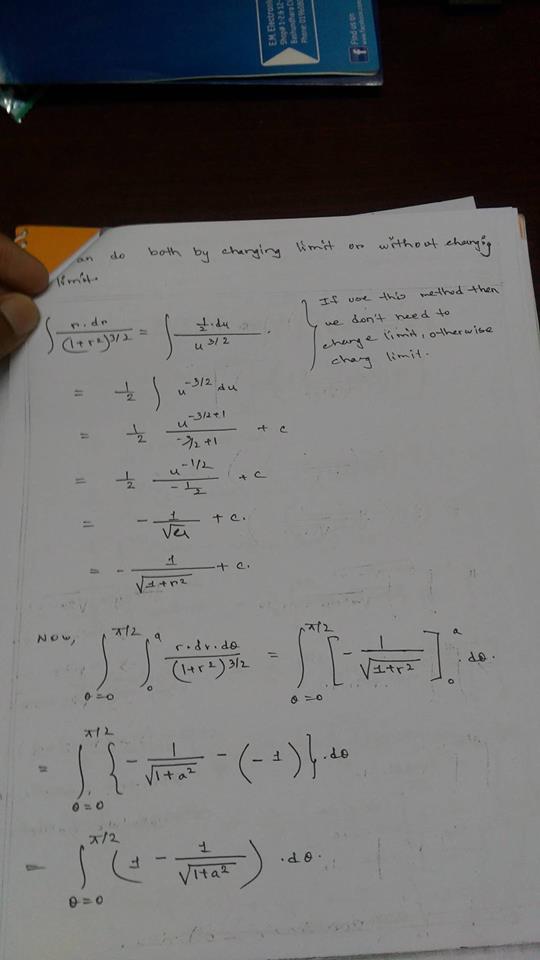 EM Electroni
Shop# 1-2 & 12-
Bashundhara C
Phone: 019680
Find us on
www.facebook.
f
an do both by changing limit or without changing
limit.
∫ r.dr/(1+r²)^3/2 = ∫ ½.du/u^3/2 .
If use this method then
we don't need to
change limit, otherwise
chang limit.
= 1/2 ∫ u^-3/2 du
= 1/2 u^-3/2+1/-3/2+1 + c
= 1/2 u^-1/2/-1/2 + c
= - 1/√u + c.
= - 1/√1+r² + c.
Now, ∫θ=0^π/2 ∫0^a r.dr.dθ/(1+r²)^3/2 = ∫θ=0^π/2 [- 1/√1+r²]0^a .dθ.
= ∫θ=0^π/2 {- 1/√1+a² - (-1)}.dθ
= ∫θ=0^π/2 (1 - 1/√1+a²) .dθ.